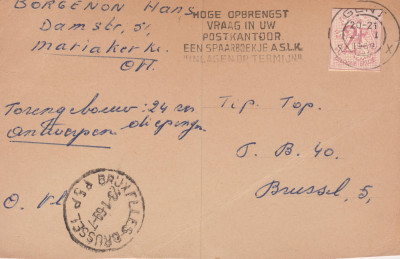 BORGENON Hans
Damstr, 51,
Mariakerke
HOGE OPBRENGST
VRAAG IN UW
POSTKANTOOR
EEN SPAARBOEKJE A.S.L.K.
INLAGEN OP TERMIJN
GENT
20-21
1969
Torengebouw: 24 
Antwerpen
O. Vl
BRUXELLES-BRUSSEL
P5P
Tip Top.
T. B. 40.
Brussel, 5,